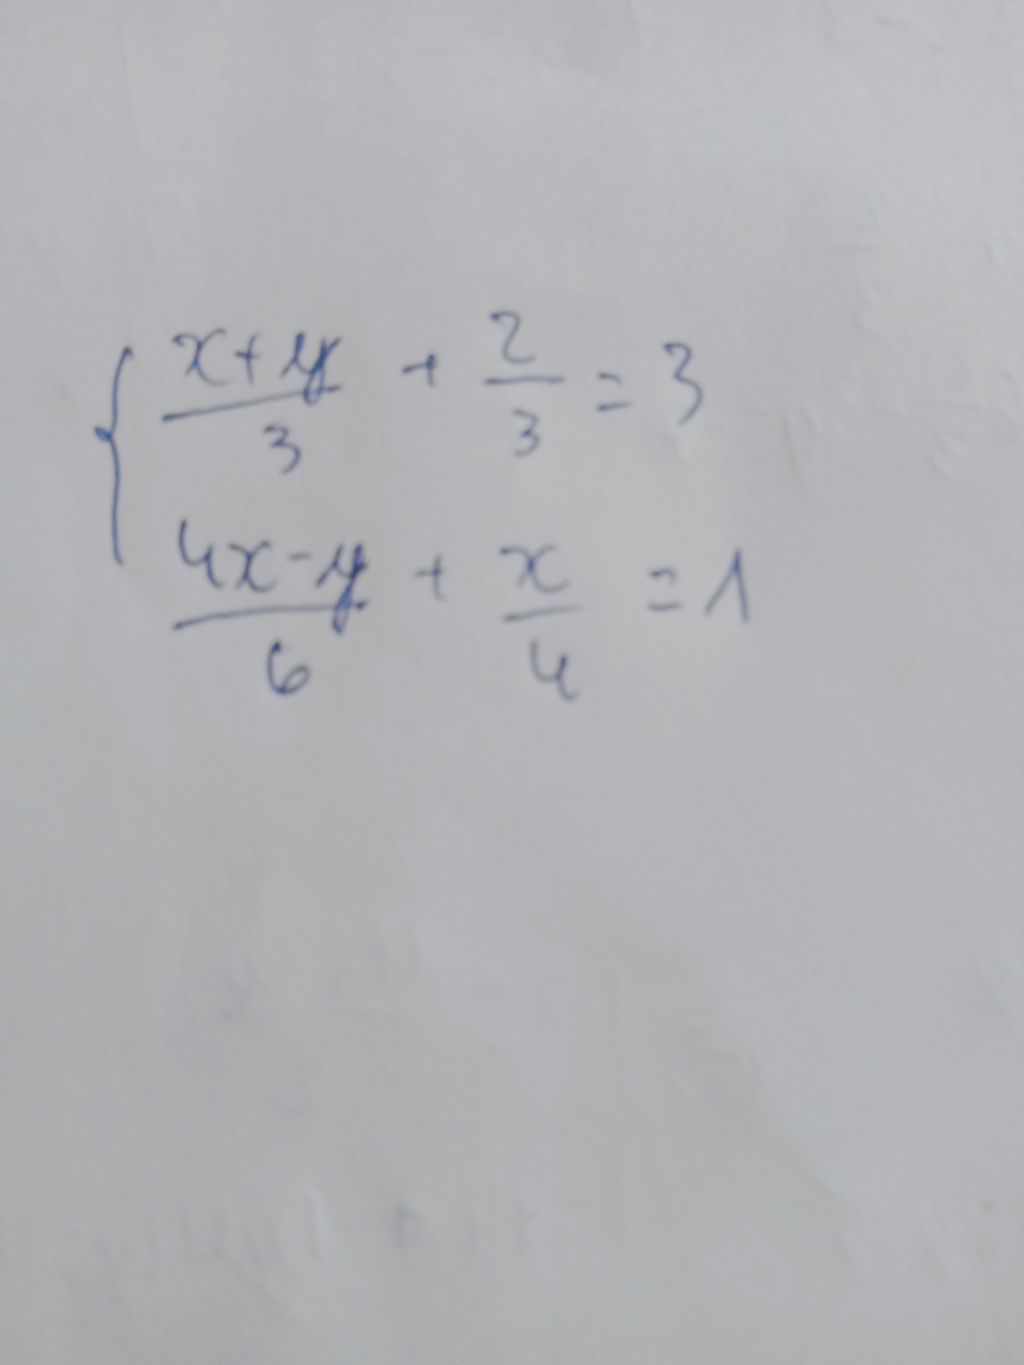 { (x+y)/3 + 2/3 = 3
(4x-y)/6 + x/4 = 1